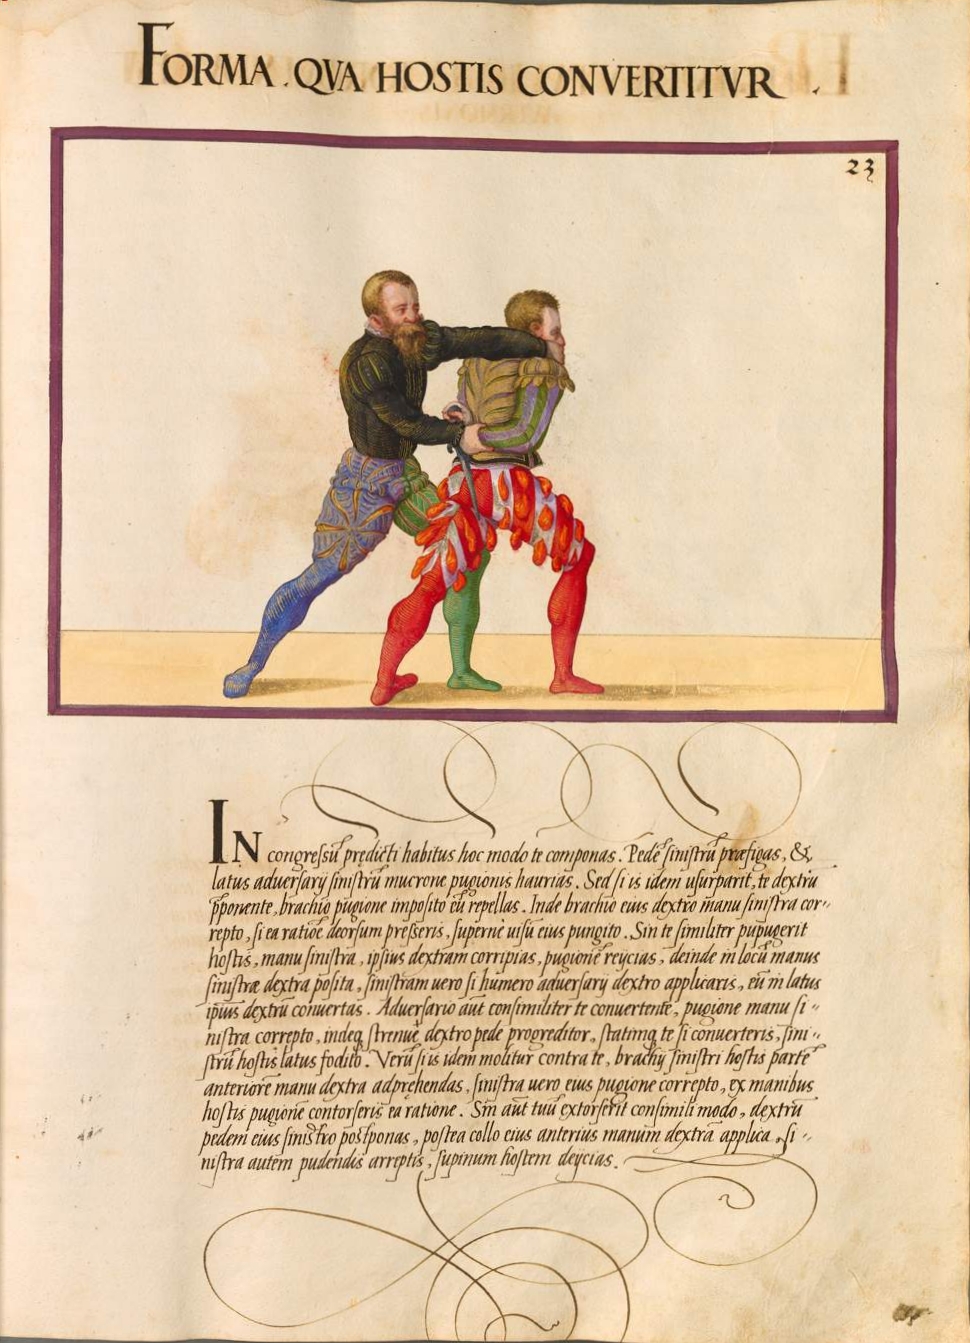 FORMA . QVA HOSTIS CONVERTITVR .
23
IN congreſsũ predicti habitus hoc modo te componas. Pedẽ ſiniſtrũ præfigas, &
latus aduerſarij ſiniſtrũ mucrone pugionis haurias. Sed ſi is idem uſurparit, te dextrũ
p̃ponente, brachio pugione impoſito eũ repellas. Inde brachio eius dextro manu ſiniſtra cor-
repto, ſi ea ratiõe deorſum preſseris, ſupernè uiſũ eius pungito. Sin te ſimiliter pupugerit
hoſtis, manu ſiniſtra, ipſius dextram corripias, pugionẽ reijcias, deinde in locũ manus
ſiniſtræ dextra poſita, ſiniſtram uero ſi humero aduerſarij dextro applicaris, eũ in latus
ipſius dextrũ conuertas. Aduerſario aũt conſimiliter te conuertente, pugione manu ſi-
niſtra correpto, indeq̃ ſtrenuè dextro pede progreditor, ſtatimq̃ te ſi conuerteris, ſini-
ſtrũ hoſtis latus fodito. Verũ ſi is idem molitur contra te, brachij ſiniſtri hoſtis partẽ
anteriorẽ manu dextra adprehendas, ſiniſtra uero eius pugione correpto, ex manibus
hoſtis pugionẽ contorſeris ea ratione. Sin aũt tuũ extorſerit conſimili modo, dextrũ
pedem eius ſiniſtro poſtponas, poſtea collo eius anterius manum dextrã applica, ſi-
niſtra autẽm pudendis arreptis, ſupinum hoſtem deijcias.